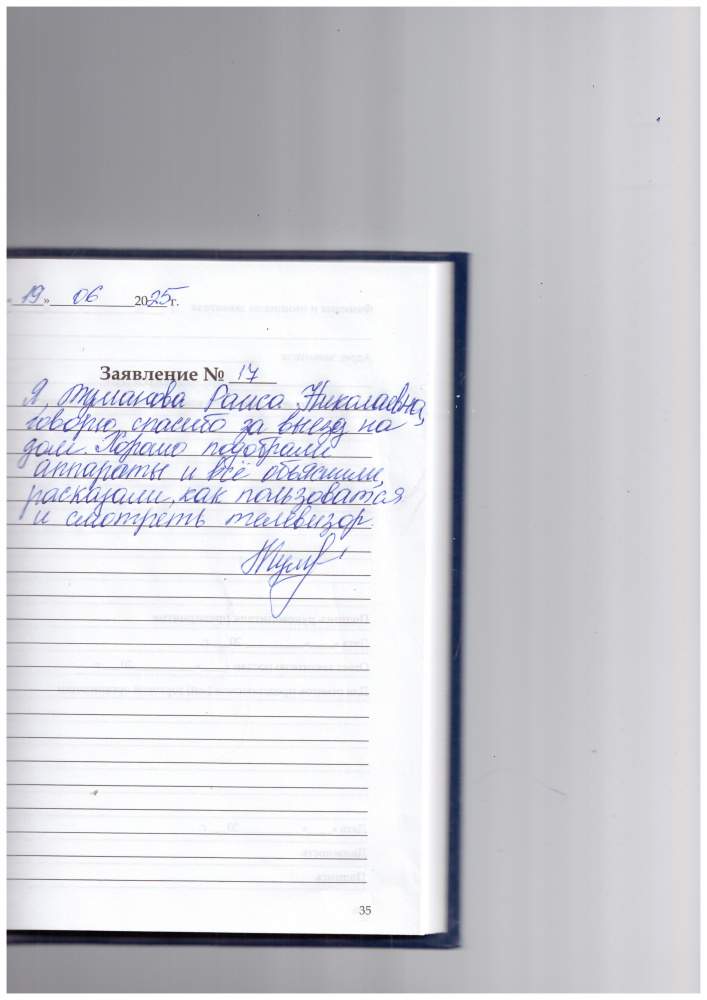 «19» 06 2025 г.
Заявление № 17
Я, Тумакова Раиса Николаевна,
говорю спасибо за выезд на
дом. Хорошо подобрали
аппараты и всё объяснили,
расказали, как пользоватся
и смотреть телевизор.
35